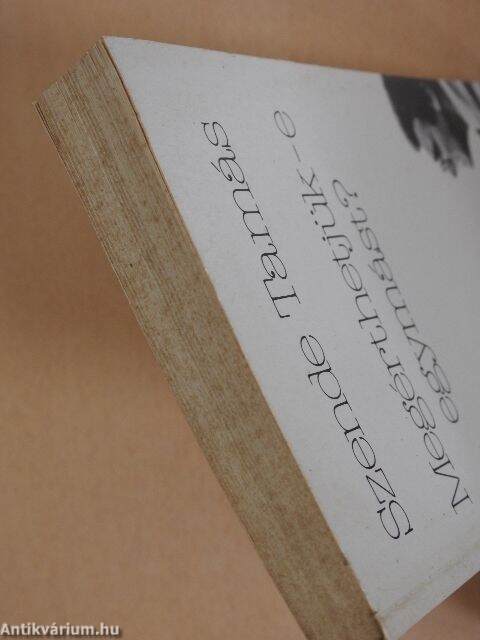 Szende Tamás
Megérthetjük-e
egymást?
Antikvárium.hu